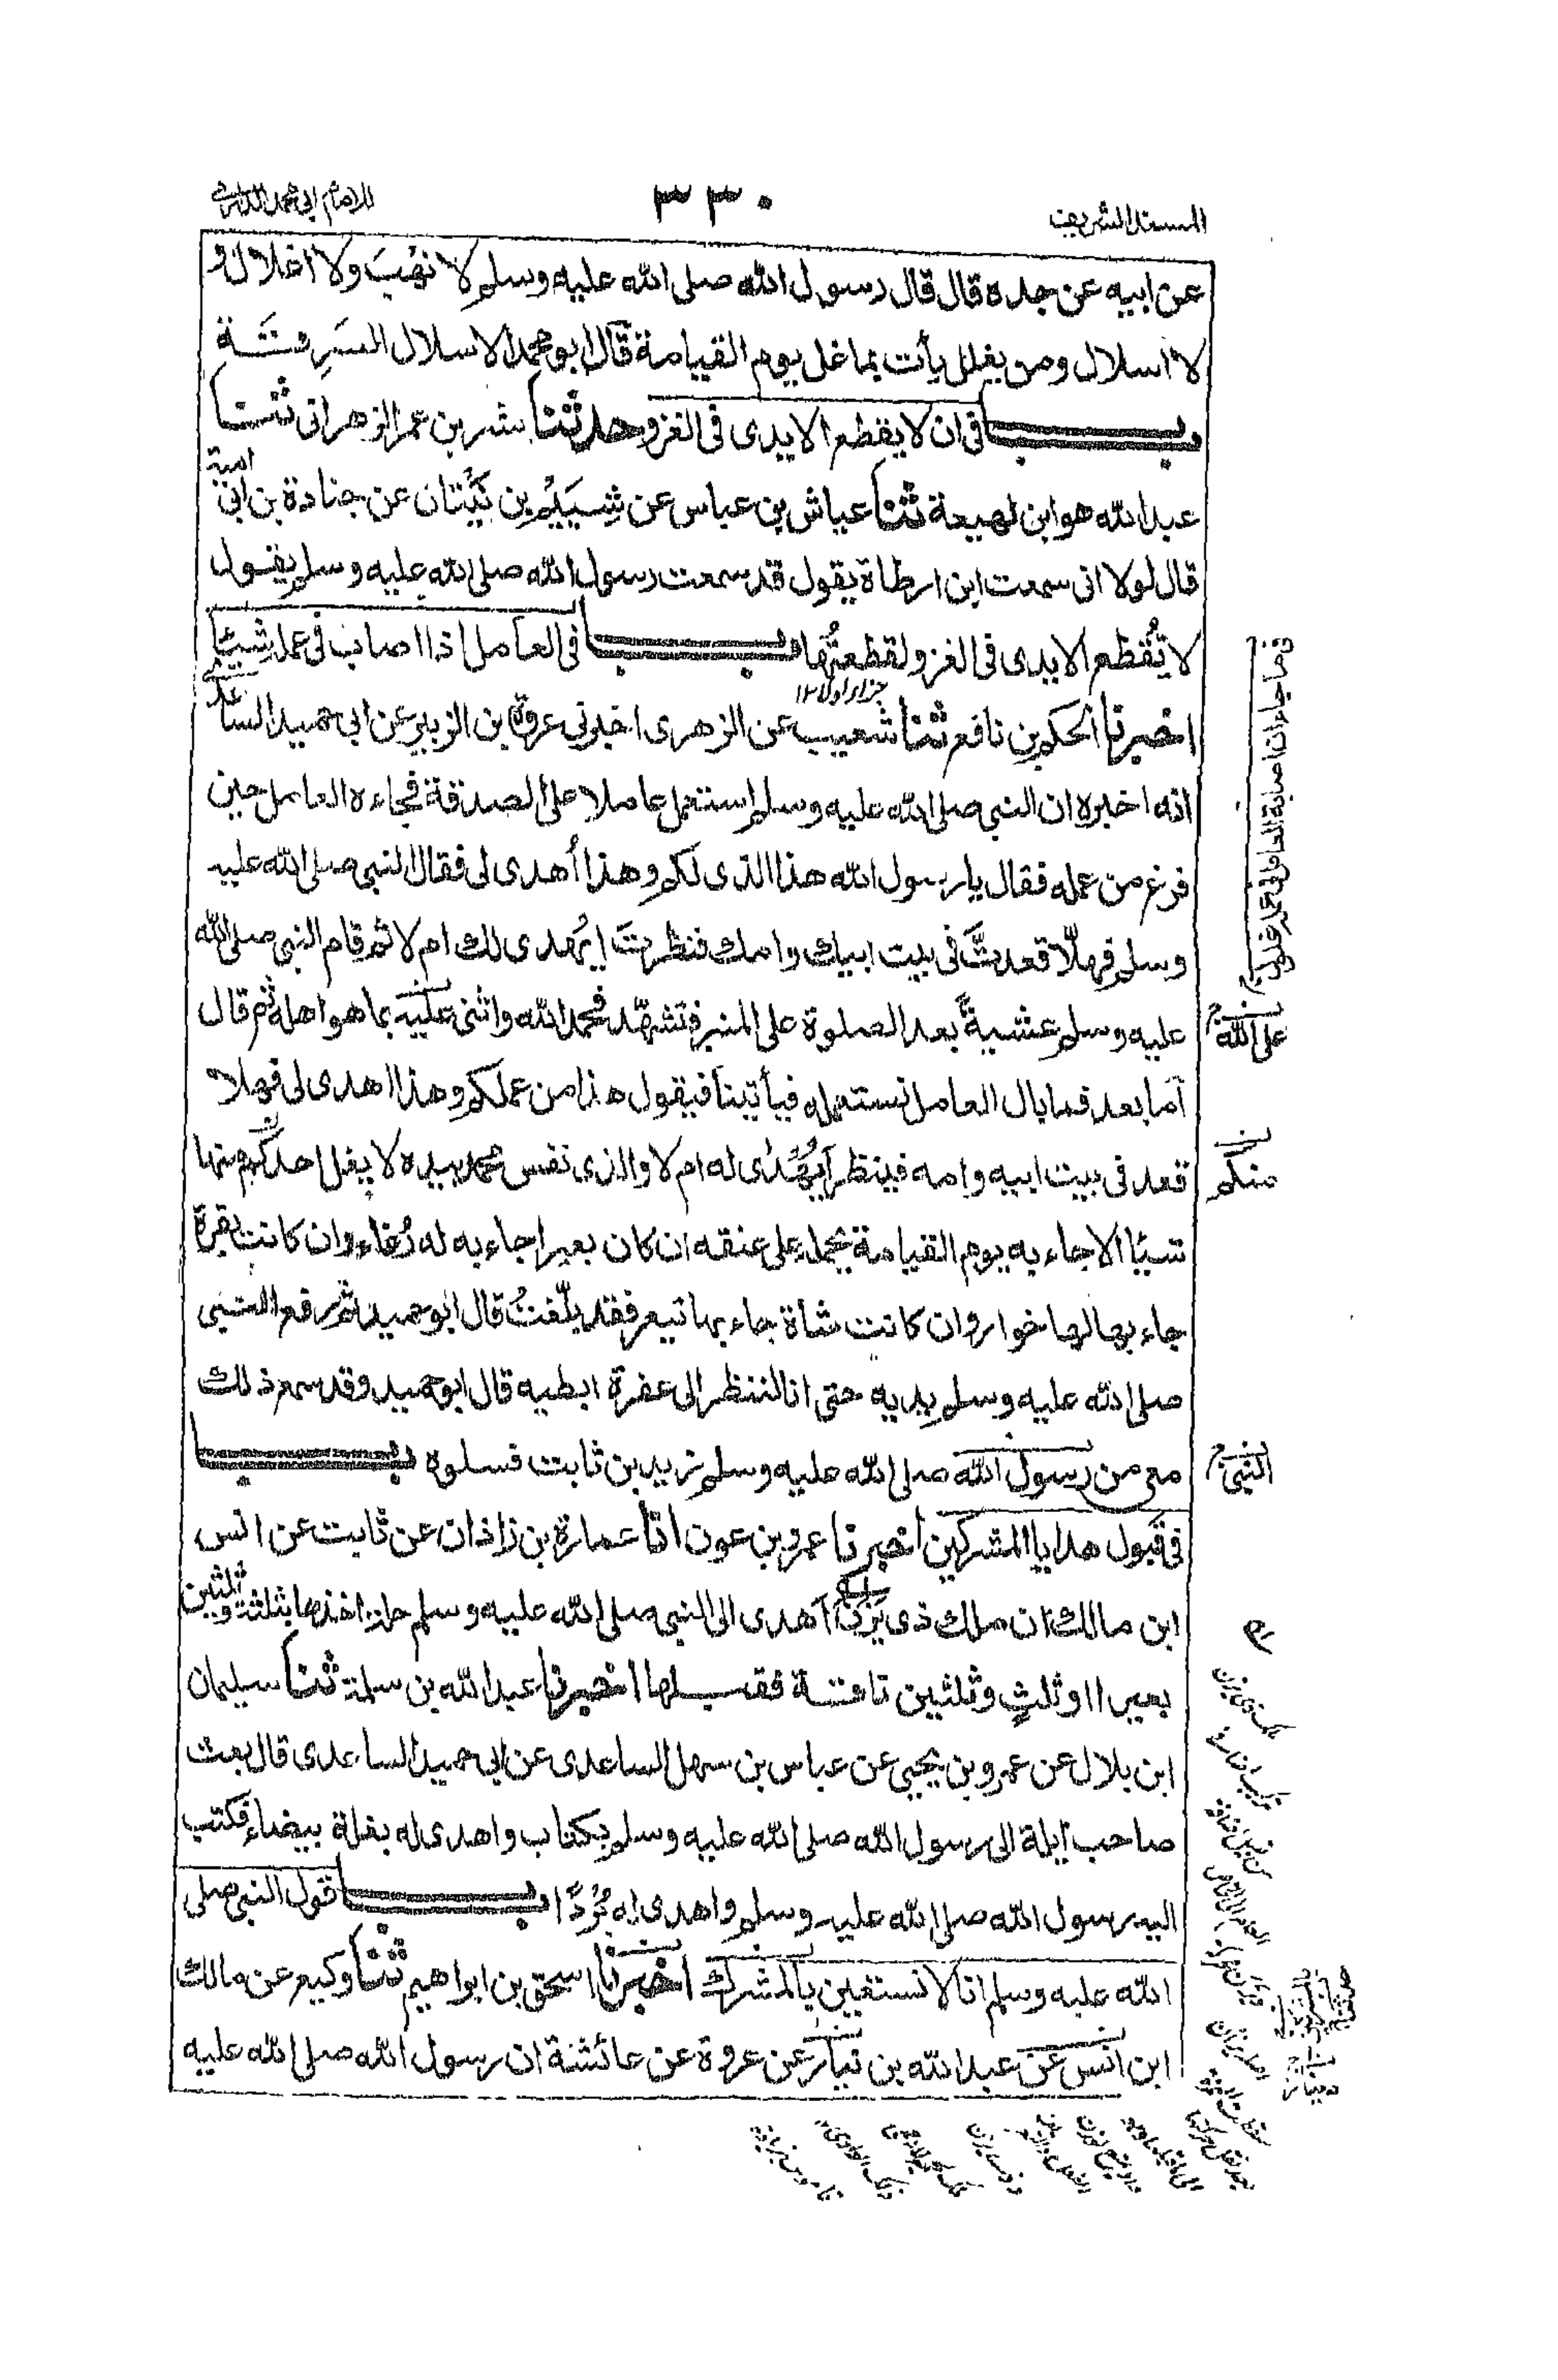 المسند الشريف
٣٣٠
للامام ابي محمد الدارمي
عن ابيه عن جده قال قال رسول الله صلى الله عليه وسلم لا نهب ولا اغلال و
لا اسلال ومن يغلل يأت بما غل يوم القيامة قال ابو محمد الاسلال السرقة
باب فى ان لا يقطع الايدى فى الغزو حدثنا بشر بن عمر الزهرانى ثنا
عبد الله هو ابن لهيعة ثنا عياش بن عباس عن شِيَيْم بن بَيْتان عن جنادة بن ابى امية
قال لولا انى سمعت ابن ارطاة يقول قد سمعت رسول الله صلى الله عليه وسلم يقول
لا تُقْطع الايدى فى الغزو لقطعتُها باب فى العامل اذا اصاب فى عمله شيئا
اخبرنا الحكم بن نافع ثنا شعيب عن الزهرى اخبرنى عروة بن الزبير عن ابى حميد الساعدى
انه اخبره ان النبى صلى الله عليه وسلم استعمل عاملا على الصدقة فجاءه العامل حين
فرغ من عمله فقال يا رسول الله هذا الذى لكم وهذا أهدى لى فقال النبى صلى الله عليه
وسلم فهلّا قعدتَّ فى بيت ابيك وامك فنظرتَ ايُهدى لك ام لا ثم قام النبى صلى الله
عليه وسلم عشيةً بعد الصلوة على المنبر فتشهّد فحمد الله واثنى عليه بما هو اهله ثم قال
على الله
اما بعد فما بال العامل نستعمله فيأتينا فيقول هذا من عملكم وهذا اهدى لى فهلا
قعد فى بيت ابيه وامه فينظر أيُهْدٰى له ام لا والذى نفس محمد بيده لا يغل احدكم منها
منكم
شيئا الا جاء به يوم القيامة يحمله على عنقه ان كان بعيرا جاء به له رُغاء وان كانت بقرة
جاء بها لها خوار وان كانت شاة جاء بها تيعر فقد بلّغتُ قال ابو حميد ثم رفع النبى
صلى الله عليه وسلم يديه حتى انا لننظر الى عفرة ابطيه قال ابو حميد وقد سمع ذلك
معى من رسول الله صلى الله عليه وسلم زيد بن ثابت فسلوه باب
النبى
فى قبول هدايا المشركين اخبرنا عمرو بن عون انا عمارة بن زاذان عن ثابت عن انس
ابن مالك ان ملك ذى يزن اهدى الى النبى صلى الله عليه وسلم حلة اخذها بثلثة وثلثين
بعيرا او ثلثٍ وثلثين ناقة فقبلها اخبرنا عبد الله بن سلمة ثنا سليمان
ابن بلال عن عمرو بن يحيى عن عباس بن سهل الساعدى عن ابى حميد الساعدى قال بعث
صاحب ايلة الى رسول الله صلى الله عليه وسلم بكتاب واهدى له بغلة بيضاء فكتب
اليه رسول الله صلى الله عليه وسلم واهدى له بُرْدًا باب قول النبى صلى
الله عليه وسلم انا لا نستعين بالمشرك اخبرنا اسحق بن ابراهيم ثنا وكيع عن مالك
ابن انس عن عبد الله بن نيار عن عروة عن عائشة ان رسول الله صلى الله عليه